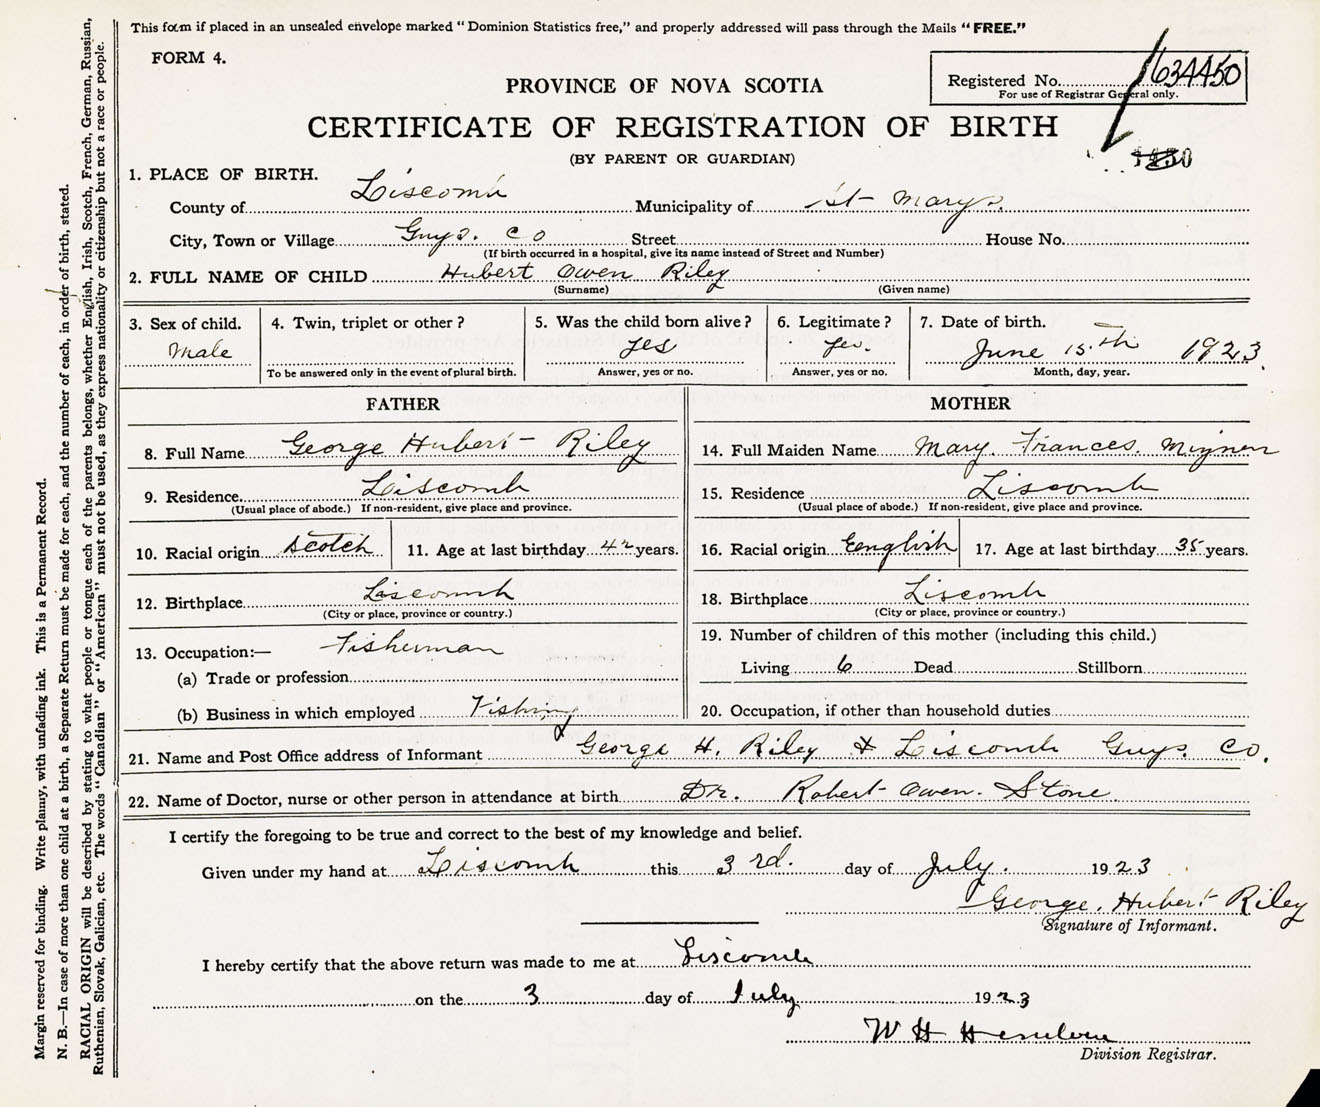 This form if placed in an unsealed envelope marked "Dominion Statistics free," and properly addressed will pass through the Mails "FREE."
FORM 4.
Registered No. 634450
For use of Registrar General only.
PROVINCE OF NOVA SCOTIA
CERTIFICATE OF REGISTRATION OF BIRTH
(BY PARENT OR GUARDIAN)
1. PLACE OF BIRTH.
County of Liscomb Municipality of St Marys.
City, Town or Village Guys. Co Street House No.
(If birth occurred in a hospital, give its name instead of Street and Number)
2. FULL NAME OF CHILD Hubert Owen Riley
(Surname) (Given name)
3. Sex of child. 4. Twin, triplet or other? 5. Was the child born alive? 6. Legitimate? 7. Date of birth.
Male yes yes. June 15th 1923.
To be answered only in the event of plural birth. Answer, yes or no. Answer, yes or no. Month, day, year.
FATHER
8. Full Name George Hubert Riley
9. Residence. Liscomb
(Usual place of abode.) If non-resident, give place and province.
10. Racial origin Scotch 11. Age at last birthday 42 years.
12. Birthplace Liscomb
(City or place, province or country.)
13. Occupation:— Fisherman
(a) Trade or profession
(b) Business in which employed Fishing
MOTHER
14. Full Maiden Name Mary. Frances.
15. Residence Liscomb
(Usual place of abode.) If non-resident, give place and province.
16. Racial origin Eenglish 17. Age at last birthday 35 years.
18. Birthplace Liscomb
(City or place, province or country.)
19. Number of children of this mother (including this child.)
Living 6 Dead Stillborn
20. Occupation, if other than household duties
21. Name and Post Office address of Informant George H. Riley & Liscomb Guys. Co.
22. Name of Doctor, nurse or other person in attendance at birth Dr. Robert Owen. Stone
I certify the foregoing to be true and correct to the best of my knowledge and belief.
Given under my hand at Liscomb this 3rd. day of July. 1923
George. Hubert Riley
Signature of Informant.
I hereby certify that the above return was made to me at Liscomb
on the 3 day of July 1923
W H
Division Registrar.
Margin reserved for binding. Write plainly, with unfading ink. This is a Permanent Record.
N. B.—In case of more than one child at a birth, a Separate Return must be made for each, and the number of each, in order of birth, stated.
RACIAL ORIGIN will be described by stating to what people or tongue each of the parents belongs, whether English, Irish, Scotch, French, German, Russian,
Ruthenian, Slovak, Galician, etc. The words "Canadian" or "American" must not be used, as they express nationality or citizenship but not a race or people.